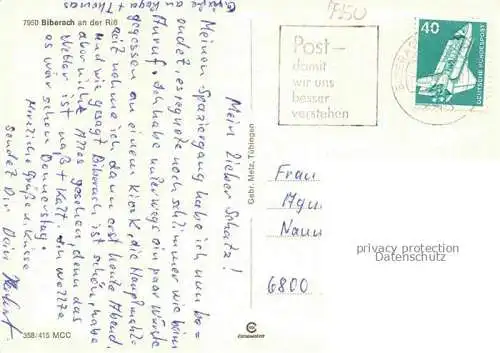 7950 Biberach an der Riß
Mein Lieber Schatz!
Meinen Spaziergang habe ich nun be=
endet, es regnete noch schlimmer wie beim
Anruf. Ich habe unterwegs ein paar Würste
gegessen an einem Kiosk, die Hauptmahl=
zeit nehme ich dann erst heute Abend
und wie gesagt Biberach ist schön, habe
aber nicht Alles gesehen, denn das
Wetter ist naß + Kalt. ich wollte
es wär schon Donnerstag.
Herzliche Grüße u. Küsse
Sendet Dir Dein
Grüße
an
+ Thomas
358/415 MCC
Gebr. Metz, Tübingen
7950
Post–
damit
wir uns
besser
verstehen
40
DEUTSCHE BUNDESPOST
Frau
6800
privacy protection
Datenschutz